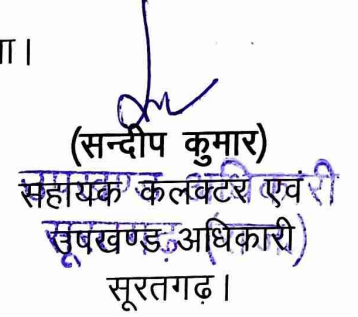 ा।
(सन्दीप कुमार)
सहायक कलक्टर एवं
उपखण्ड अधिकारी
सूरतगढ़।